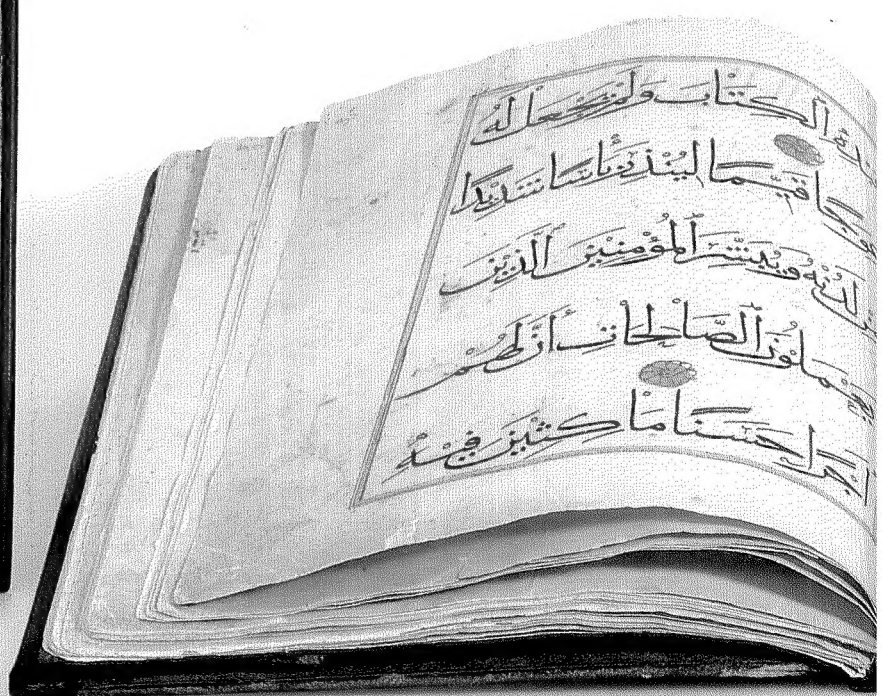 عَبْدِهِ ٱلْكِتَابَ وَلَمْ يَجْعَل لَهُ
عِوَجًا قَيِّمًا لِيُنْذِرَ بَأْسًا شَدِيدًا
مِنْ لَدُنْهُ وَيُبَشِّرَ ٱلْمُؤْمِنِينَ ٱلَّذِينَ
يَعْمَلُونَ ٱلصَّالِحَاتِ أَنَّ لَهُمْ
أَجْرًا حَسَنًا مَاكِثِينَ فِيهِ